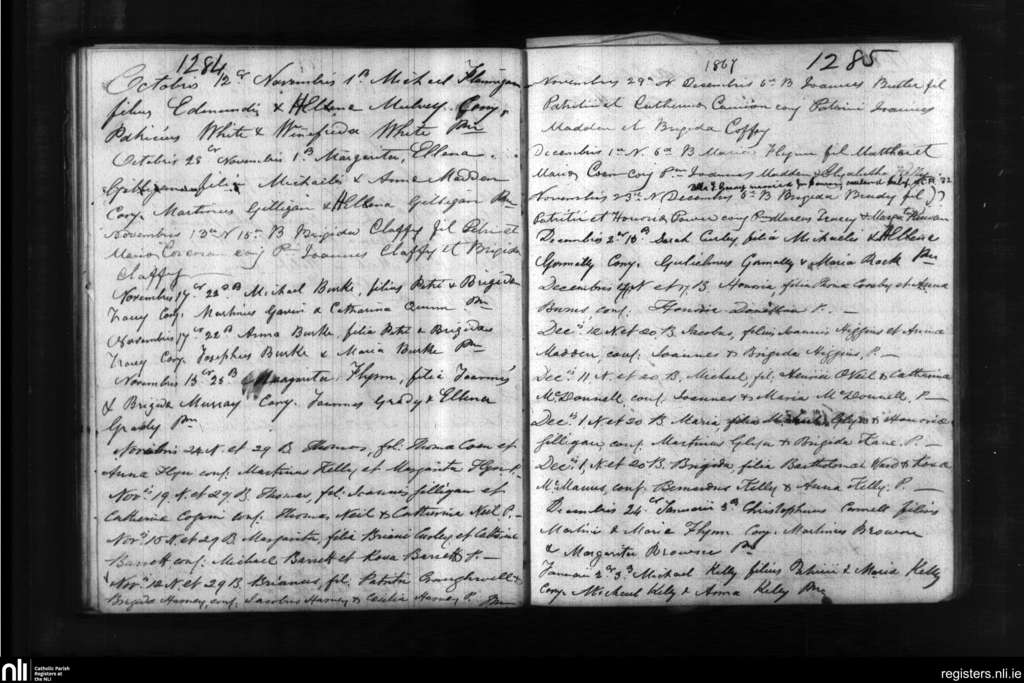 1284
Octobris 12 Novembris 1 B Michael Flanigan
filius Edmundi & Hellena Mulvey. Conj.
Patricius White & Winefrida White Pm
Octobris 28 Novembris 1 B Margarita, Ellena
Gilligan filia Michaelis & Anne Madden
Conj. Martinus Gilligan & Hellena Gilligan Pm
Novembris 13 N 15 B Brigida Claffy fil Petri et
Maria Corcoran conj Pm Joannes Claffy et Brigida
Claffy
Novembris 17 23 B Michael Burke, filius Petri & Brigida
Tracy Conj. Martinus Gavin & Catharina Quinn Pm
Novembris 17 22 Anna Burke filia Petri & Brigidae
Tracy Conj. Josephus Burke & Maria Burke Pm
Novembris 13 25 B Margarita Flynn, filia Joannis
& Brigida Murray Conj. Joannes Grady & Ellena
Grady Pm
Novembris 24 N. et 29 B Thomas, fil. Thoma Coen et
Anna Flyn conj. Martinus Kelly et Margarita Flyn P.
Nov. 19 N. et 29 B. Thomas, fil. Joannis Gilligan et
Catherina conj. Thomas Neil & Catherina Neil P.
Nov. 15 N. et 29 B Margarita, filia Briani Curley et Catherina
Barrett conj. Michael Barrett et Rosa Barrett P.
Nov. 12 N. et 29 B. Brianus, fil. Patritii &
Brigida Harney, conj. Jacobus Harney & Cecilia Harney P. Pm
1867 1285
Novembris 29 N Decembris 5 B Joannes Butler fil
Patritii et Catherina conj Patrini Joannes
Madden et Brigida Coffey
Decembris 1 N. 6 B Maria Flynn fil Matthai et
Maria Coen conj Pm Joannes Madden & Elizabetha
Novembris 23 N Decembris 8 B Brigida Brady fil
Patritii et Honoria Power conj Pm Marcus Tracey & Marga
Decembris 2 13 B Sarah Curley filia Michaelis & Hellena
Gormally Conj. Gulielmus Gormally & Maria Rock Pm
Decembris N et 17 B Honoria filia et Anna
Burns conj. P.
Dec. 12 N. et 20. B. Jacobus, filius Joannis Higgins et Anna
Madden, conj. Joannes & Brigida Higgins, P.
Dec. 11 N. et 20. B. Michael, fil. Henrici ONeil & Catherina
McDonnell, conj. Joannes & Maria McDonnell, P.
Dec. 1 N. et 20 B. Maria filia Michaelis Glynn & Honoria
Gilligan, conj. Martinus Glynn & Brigida Kane. P.
Dec. 1, N. et 20 B. Brigida, filia Bartholomai Ward & Rosa
McManus, conj. Bernardus Kelly & Anna Kelly. P.
Decembris 24 Januarii 3 Christopherus Connell filius
Martini & Maria Flynn Conj. Martinus Browne
& Margarita Browne Pm
Januarii 2 3 Michael Kelly filius Patricii & Maria Kelly
Conj. Michael Kelly & Anna Kelly Pm
nli
Catholic Parish
Registers at
the NLI
registers.nli.ie